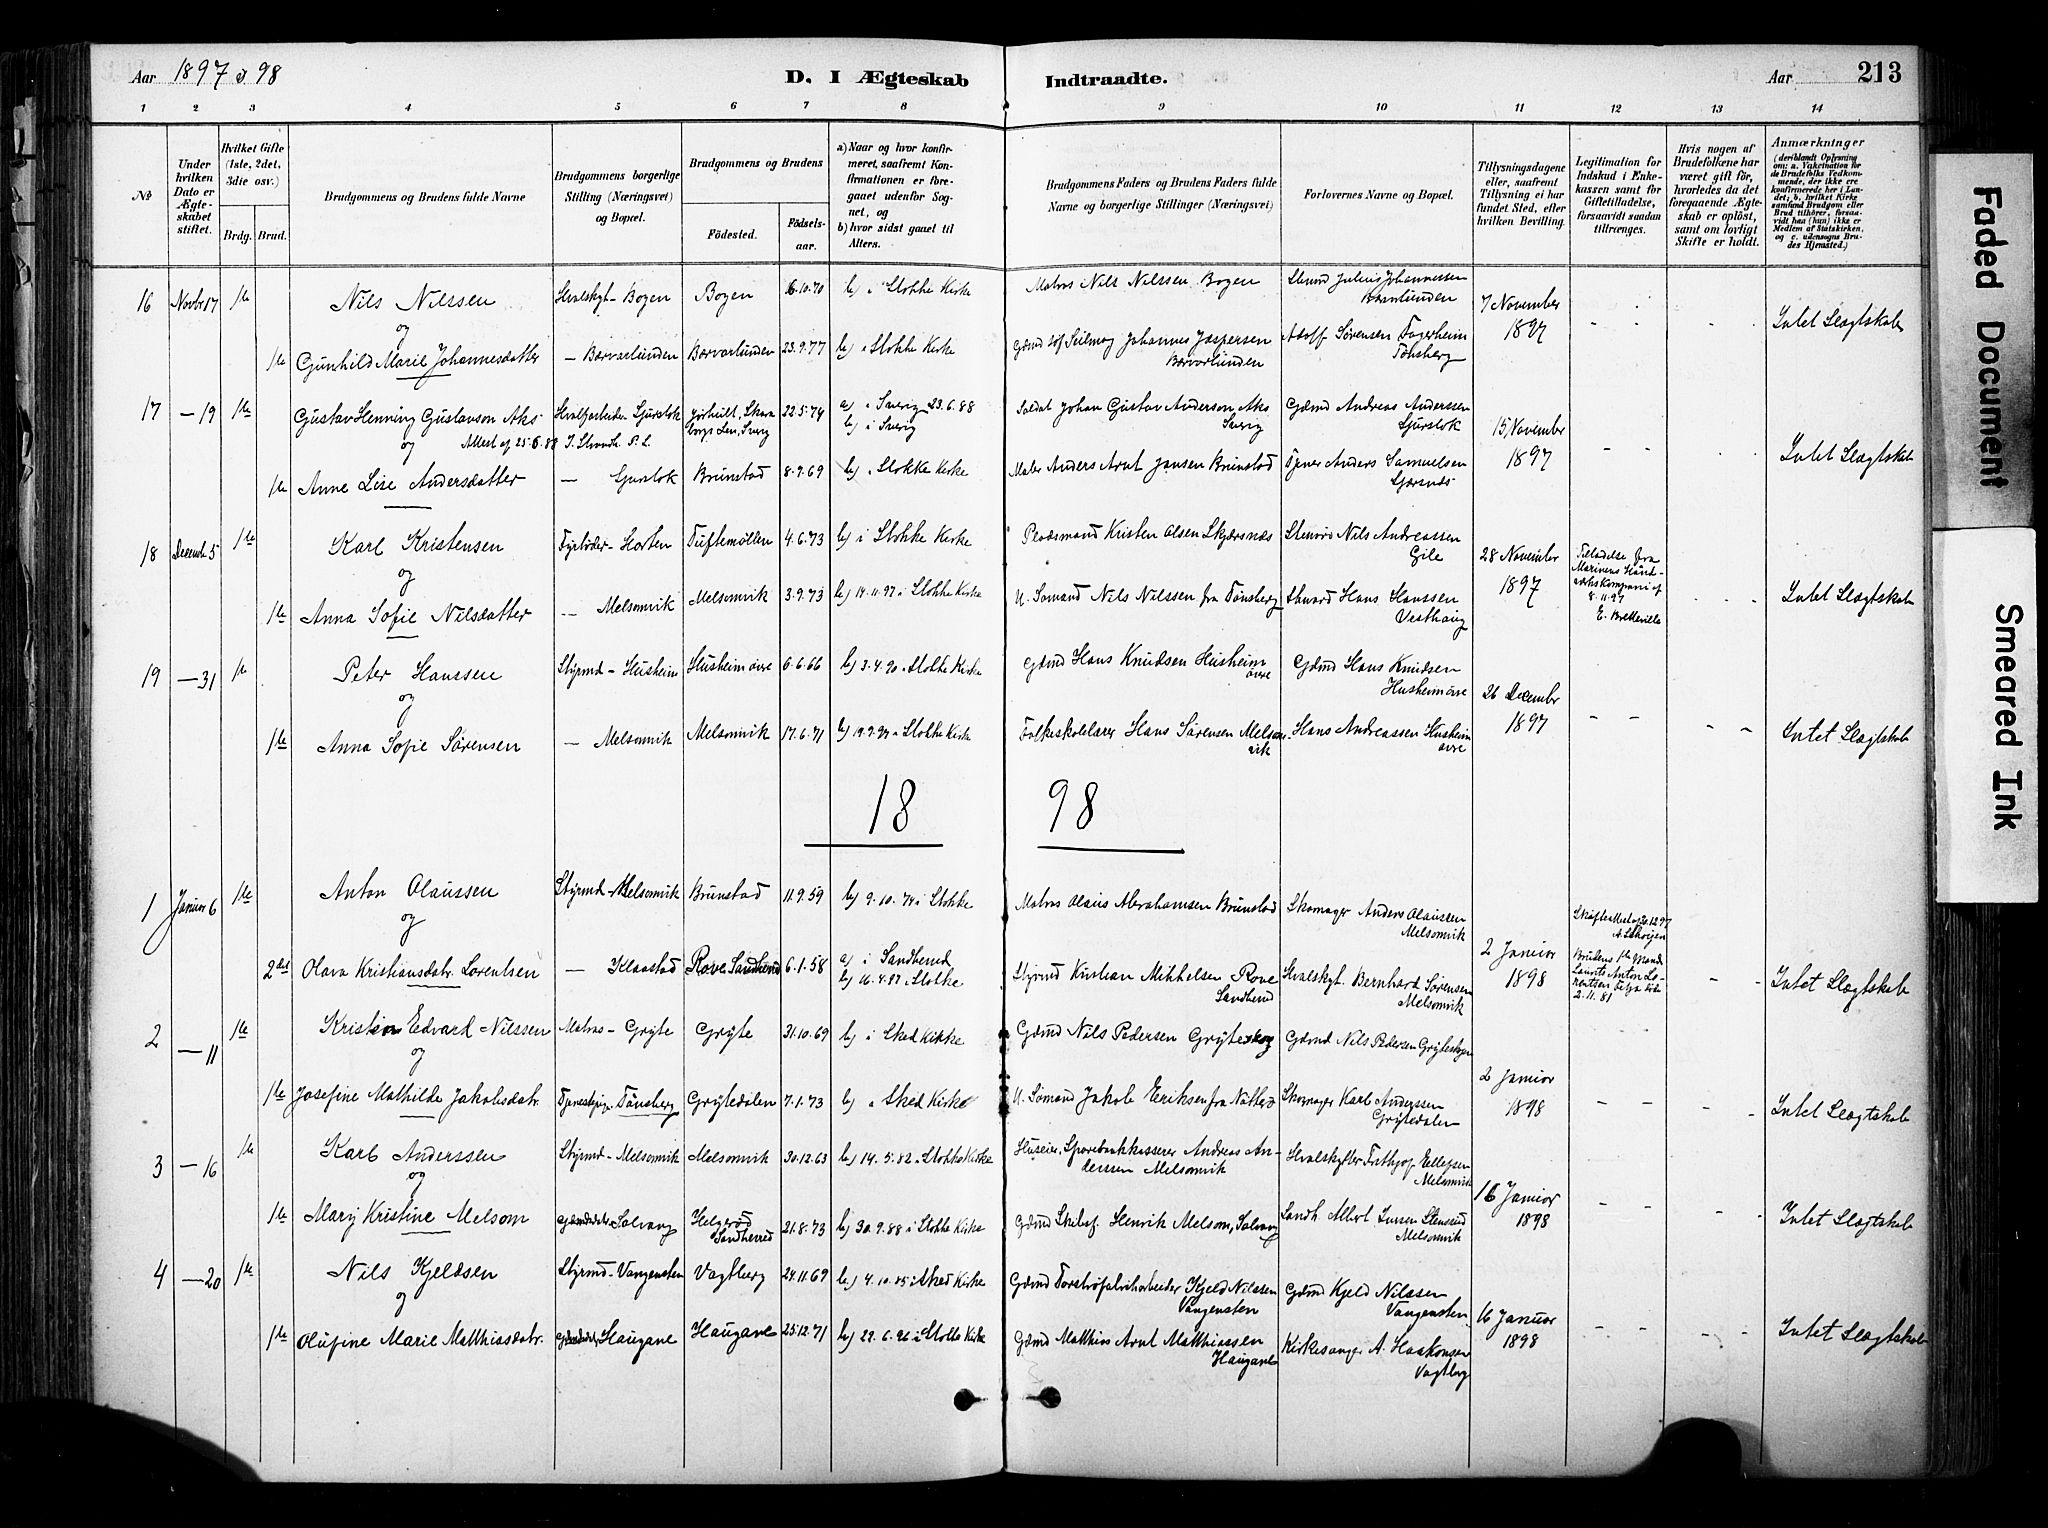 Aar 1897 & 98
D. I Ægteskab Indtraadte.
Aar 213
1 2 3 4 5 6 7 8 9 10 11 12 13 14
No
Under hvilken Dato er Ægteskabet stiftet.
Hvilket Gifte (1ste, 2det, 3die osv.)
Brdg. Brud.
Brudgommens og Brudens fulde Navne
Brudgommens borgerlige Stilling (Næringsvei) og Bopæl.
Brudgommens og Brudens
Fødested.
Fødselsaar.
a) Naar og hvor konfirmeret, saafremt Konfirmationen er foregaaet udenfor Sognet, og
b) hvor sidst gaaet til Alters.
Brudgommens Faders og Brudens Faders fulde Navne og borgerlige Stillinger (Næringsvei)
Forlovernes Navne og Bopæl.
Tillysningsdagene eller, saafremt Tillysning ei har fundet Sted, efter hvilken Bevilling.
Legitimation for Indskud i Enkekassen samt for Giftetilladelse, forsaavidt saadan tiltrænges.
Hvis nogen af Brudefolkene har været gift før, hvorledes da det foregaaende Ægteskab er opløst, samt om lovligt Skifte er holdt.
Anmærkninger
(deriblandt Oplysning om: a. Vakcination for Brudefolks Vedkommende, der ikke ere konfirmerede her i Landet; b. hvilket Kirkesamfund Brudgom eller Brud tilhører, forsaavidt han (hun) ikke er Medlem af Statskirken, og c. udensogns Brudes Hjemsted.)
16 Novbr 17 1ste Nils Nilssen Hvalskyt- Bogen Bogen 16.10.70 b) i Stokke Kirke Matros Nils Nilssen Bogen Julius Johannessen Bærvarlunden 7 November 1897
og
1ste Gunhild Marie Johannesdatter - Bærvarlunden Bærvarlunden 23.9.77 b) i Stokke Kirke Johannes Jaspersen Bærvarlunden Adolf Sørensen Fagerheim Tønsberg Intet Slægtskab
17 - 19 1ste Gustav Henning Gustavson Aks 22.5.74 a) i Sverig 23.6.88 b) i Sverig Soldat Johan Gustav Anderson Aks Sverig Gdmd Andreas Anderssen Gjurslok 15 November 1897
og Attest af 25.6.88
1ste Anne Lise Andersdatter - Gjurslok Brunstad 8.9.69 b) i Stokke Kirke Maler Anders Arnt Jansen Brunstad Anders Samuelsen Intet Slægtskab
18 Decemb. 5 1ste Karl Kristensen Fyrbøder- Horten Tuftemøllen 4.6.73 b) i Stokke Kirke Pladsmand Kristen Olsen Skjærsnæs Nils Andreassen Gile 28 November 1897 Tilladelse fra Marinens Haandværkskompani af 8.11.97
og
1ste Anna Sofie Nilsdatter - Melsomvik Melsomvik 3.9.73 b) 14.11.97 i Stokke Kirke U. Sømand Nils Nilssen fra Tønsberg Hans Hanssen Vesthaug Intet Slægtskab
19 - 31 1ste Peter Hanssen Styrmd - Husheim Husheim øvre 6.6.66 b) 3.4.90 i Stokke Kirke Gdmd Hans Knudsen Husheim øvre Gdmd Hans Knudsen Husheim øvre 26 December 1897
og
1ste Anna Sofie Sørensen - Melsomvik Melsomvik 17.6.71 b) i Stokke Kirke Folkeskolelærer Hans Sørensen Melsomvik Hans Andreassen Husheim øvre Intet Slægtskab
18 98
1 Januar 6 1ste Anton Olaussen Styrmd - Melsomvik Brunstad 11.9.59 b) 9.10.74 i Stokke Matros Olaus Abrahamsen Brunstad Skomager Anders Olaussen Melsomvik 2 Januar 1898 Skifteattest af 20.12.97
og
2det Olava Kristiansdatr. Lorentsen - Haastad Rove Sandherred 6.1.58 a) i Sandherred b) 16.4.97 i Stokke Styrmd Kristian Mikkelsen Rove Sandherred Hvalskyt. Bernhard Sørensen Melsomvik Brudens 1ste Mand Laurits Anton Lorentsen 2.11.81 Intet Slægtskab
2 - 11 1ste Kristen Edvard Nilssen Matros - Gryte Gryte 31.10.69 b) i Sked Kirke Gdmd Nils Pedersen Gryteskog Gdmd Nils Pedersen Gryteskogen 2 Januar 1898
og
1ste Josefine Mathilde Jakobsdatr. Tjenestpige - Tønsberg Grytedalen 7.1.73 b) i Sked Kirke U. Sømand Jakob Eriksen fra Nøtterø Skomager Karl Anderssen Grytedalen Intet Slægtskab
3 - 16 1ste Karl Anderssen Styrmd - Melsomvik Melsomvik 30.12.63 b) 14.5.82 i Stokke Kirke Huseier, Sparebankkasserer Andreas Anderssen Melsomvik Hvalskytter Frithjof Ellefsen Melsomvik 16 Januar 1898
og
1ste Mary Kristine Melsom Solvang Helgerød Sandherred 21.8.73 b) 30.9.88 i Stokke Kirke Gdmd Skibsf. Henrik Melsom, Solvang Landh. Albert Iversen Melsomvik Intet Slægtskab
4 - 20 1ste Nils Kjeldsen Styrmd - Vangensten Vagtberg 24.11.69 b) 4.10.85 i Sked Kirke Gdmd Torstrøfabrikarbeider Kjeld Nilssen Vangensten Gdmd Kjeld Nilssen Vangensten 16 Januar 1898
og
1ste Olufine Marie Matthiasdatr. Haugane Haugane 25.12.71 b) i Stokke Kirke Gdmd Matthias Arnt Matthiassen Haugane Kirkesanger A. Haakonsen Vagtberg Intet Slægtskab
Faded Document
Smeared Ink